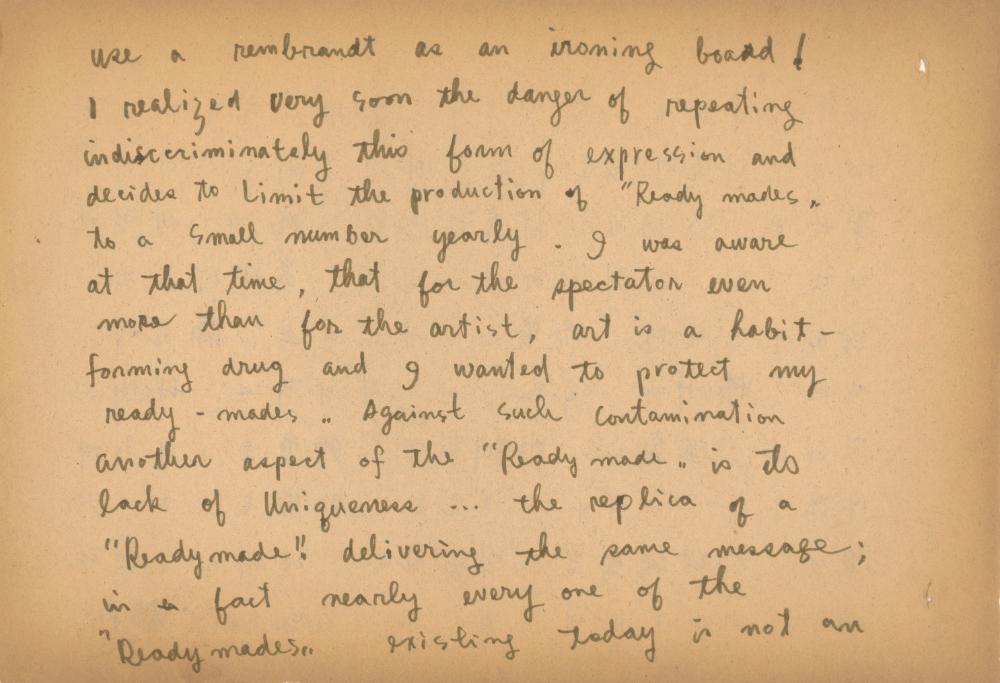 use a rembrandt as an ironing board!
I realized very soon the danger of repeating
indisccriminately this form of expression and
decides to Limit the production of "Ready mades„
to a small number yearly. I was aware
at that time, that for the spectator even
more than for the artist, art is a habit-
forming drug and I wanted to protect my
ready-mades„ Against such contamination
another aspect of the "Ready made„ is its
lack of Uniqueness ... the replica of a
"Ready made"! delivering the same message;
in a fact nearly every one of the
"Ready mades„ existing today is not an